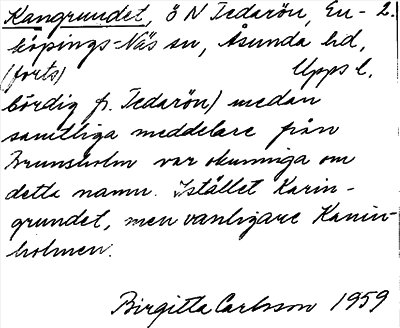 Kangrundet, ö N Tedarön, En- 2.
köpings-Näs sn, Åsunda hd,
(forts) Upps l.
bördig fr. Tedarön) medan
samtliga meddelare från
Brunsholm var okunniga om
detta namn. Istället Karin-
grundet, men vanligare Kanin-
holmen.
Birgitta Carlsson 1959